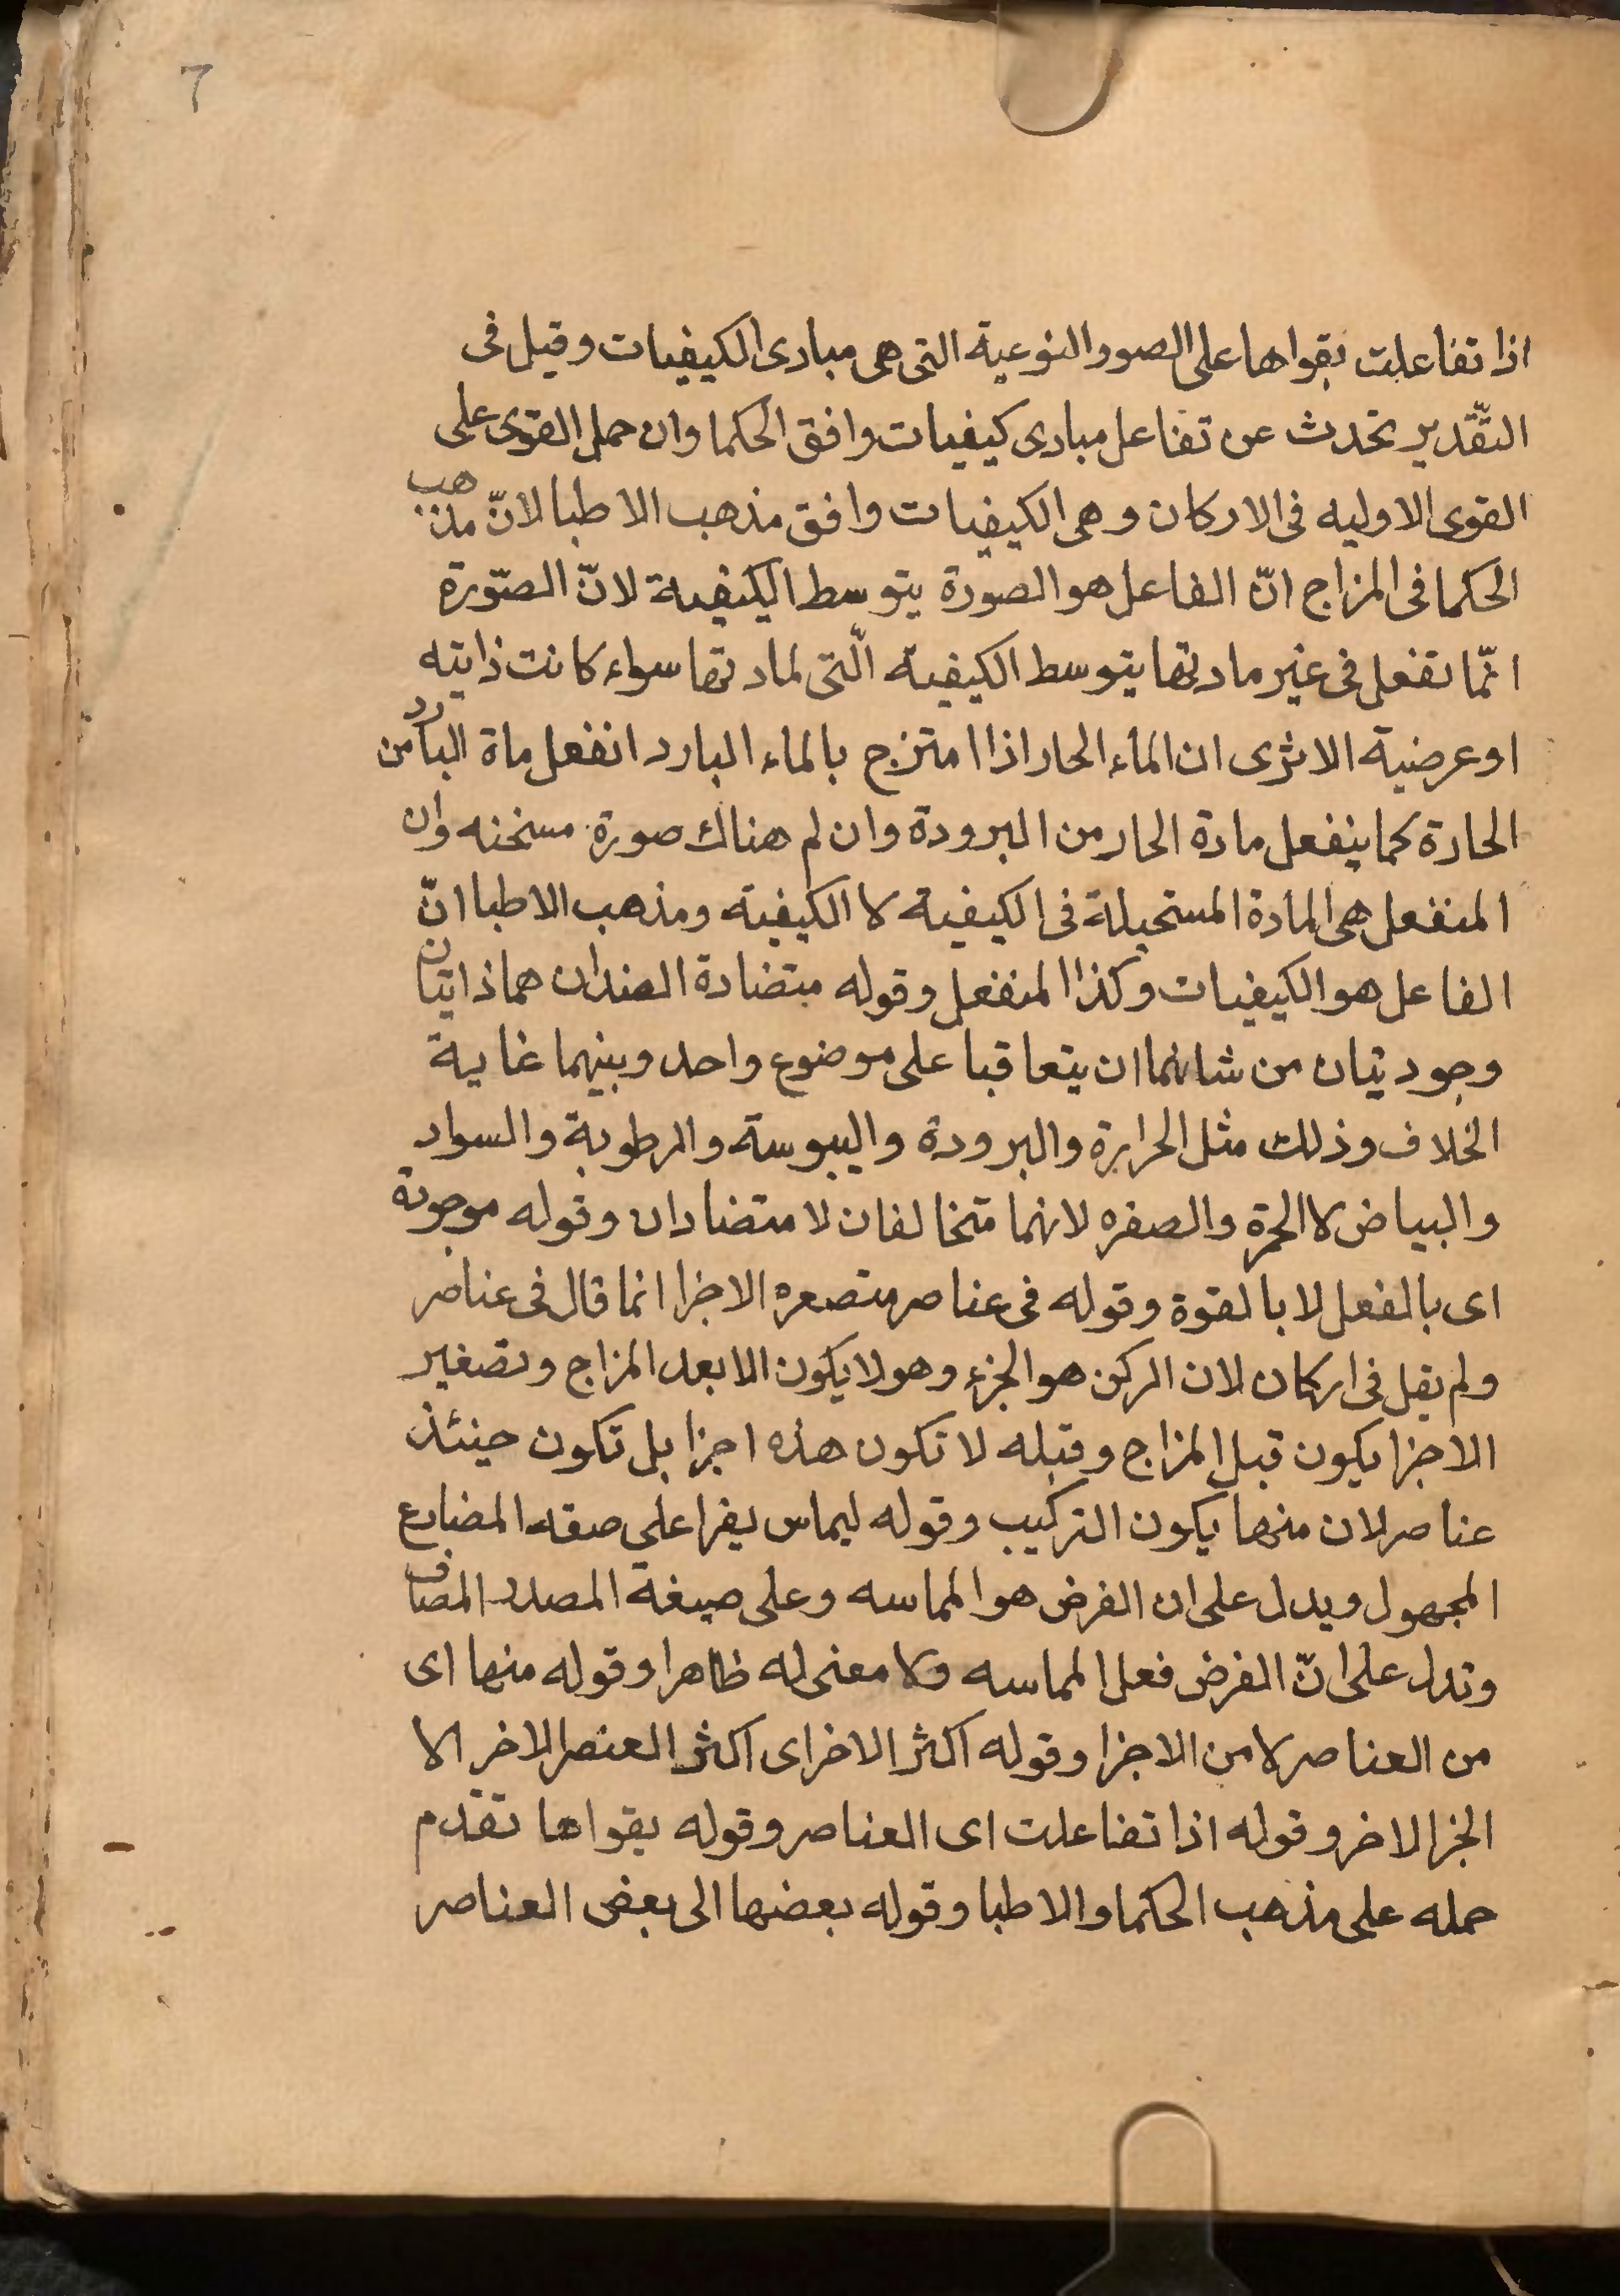 7
اذا تفاعلت بقواها على الصور النوعية التى هى مبادى الكيفيات وقيل فى
التقّدير تحدث عن تفاعل مبادى كيفيات وافق الحكما وان حمل القوى على
القوى الاوليه فى الاركان وهى الكيفيات وافق مذهب الاطبا لانّ مذهب
الحكما فى المزاج انّ الفاعل هو الصورة بتوسط الكيفية لانّ الصّورة
انّما تفعل فى غير مادتها بتوسط الكيفية الّتى لمادتها سواء كانت ذايته
او عرضية الا ترى ان الماء الحار اذا امتزج بالماء البارد انفعل ماة البارد من
الحارة كما ينفعل مادة الحار من البرودة وان لم هناك صورة مسخنه وان
المنفعل هى المادة المستحيلة فى الكيفية لا الكيفية ومذهب الاطبا انّ
الفاعل هو الكيفيات وكذا المنفعل وقوله متضادة الضدان هما ذاتيان
وجوديتان من شانهما ان يتعاقبا على موضوع واحد وبينهما غاية
الخلاف وذلك مثل الحرارة والبرودة واليبوسة والرطوبة والسواد
والبياض لا الحمرة والصفره لانهما متخالفان لا متضادان وقوله موجودة
اى بالفعل لا بالقوة وقوله فى عناصر متصعره الاجزا انما قال فى عناصر
ولم يقل فى اركان لان الركن هو الجزء وهو لا يكون الا بعد المزاج وتصغير
الاجزا يكون قبل المزاج وقبله لا تكون هذه اجزا بل تكون حينئذ
عناصر لان منها يكون التركيب وقوله ليماس يقرا على صيغه المضارع
المجهول ويدل على ان الغرض هو المماسه وعلى صيغة المصدر المضاف
وتدل على انّ الغرض فعل المماسه ولا معنى له ظاهرا وقوله منها اى
من العناصر لا من الاجزا وقوله اكثر الاخر اى اكثر العنصر الاخر لا
الجزا الاخر وقوله اذا تفاعلت اى العناصر وقوله بقواها تقدم
حمله على مذهب الحكما والاطبا وقوله بعضها الى بعض العناصر